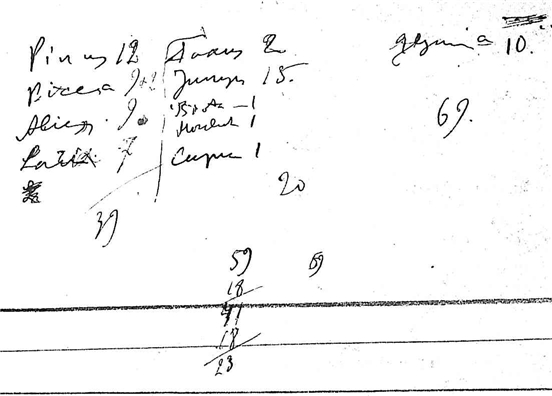 Pinus 12
Picea 9+2
Abies 9
Larix 7
39
Taxus 2
Junip 15.
Biota – 1
1
Cupre 1
20
10.
69.
59 69
18
41
18
23